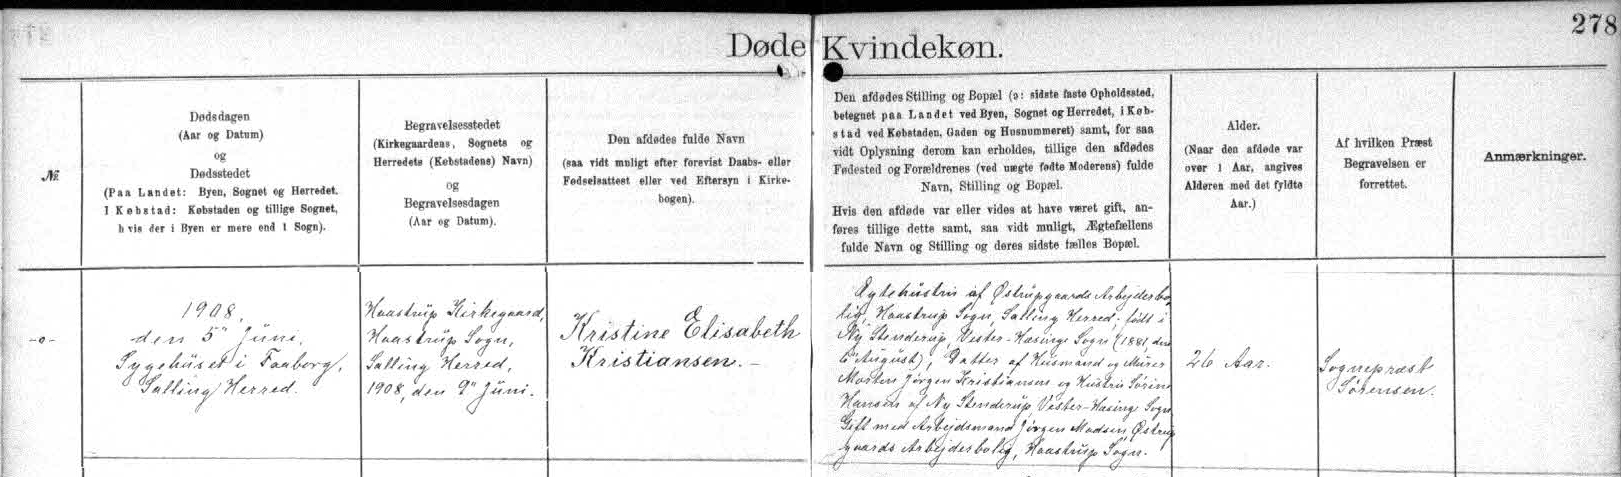 278
Døde Kvindekøn.
№
Dødsdagen
(Aar og Datum)
og
Dødsstedet
(Paa Landet: Byen, Sognet og Herredet.
I Købstad: Købstaden og tillige Sognet,
hvis der i Byen er mere end 1 Sogn).
Begravelsesstedet
(Kirkegaardens, Sognets og
Herredets (Købstadens) Navn)
og
Begravelsesdagen
(Aar og Datum).
Den afdødes fulde Navn
(saa vidt muligt efter forevist Daabs- eller
Fødselsattest eller ved Eftersyn i Kirke-
bogen).
Den afdødes Stilling og Bopæl (ɔ: sidste faste Opholdssted,
betegnet paa Landet ved Byen, Sognet og Herredet, i Køb-
stad ved Købstaden, Gaden og Husnummeret) samt, for saa
vidt Oplysning derom kan erholdes, tillige den afdødes
Fødested og Forældrenes (ved uægte fødte Moderens) fulde
Navn, Stilling og Bopæl.
Hvis den afdøde var eller vides at have været gift, an-
føres tillige dette samt, saa vidt muligt, Ægtefællens
fulde Navn og Stilling og deres sidste fælles Bopæl.
Alder.
(Naar den afdøde var
over 1 Aar, angives
Alderen med det fyldte
Aar.)
Af hvilken Præst
Begravelsen er
forrettet.
Anmærkninger.
-o-
1908,
den 5" Juni.
Sygehuset i Faaborg,
Salling Herred.
Haastrup Kirkegaard,
Haastrup Sogn,
Salling Herred,
1908, den 9" Juni.
Kristine Elisabeth
Kristiansen. -
Egtehustru af Østrupgaards Arbejderbo-
lig, Haastrup Sogn, Salling Herred; født i
Ny Stenderup, Vester-Hæsinge Sogn (1881, den
6" August), Datter af Husmand og Murer
Morten Jørgen Kristiansen og Hustru Sørine
Hansen af Ny Stenderup, Vester-Hæsinge Sogn
Gift med Arbejdsmand Jørgen Madsen, Østrup-
gaards Arbejderbolig, Haastrup Sogn.
26 Aar.
Sognepræst
Sørensen.